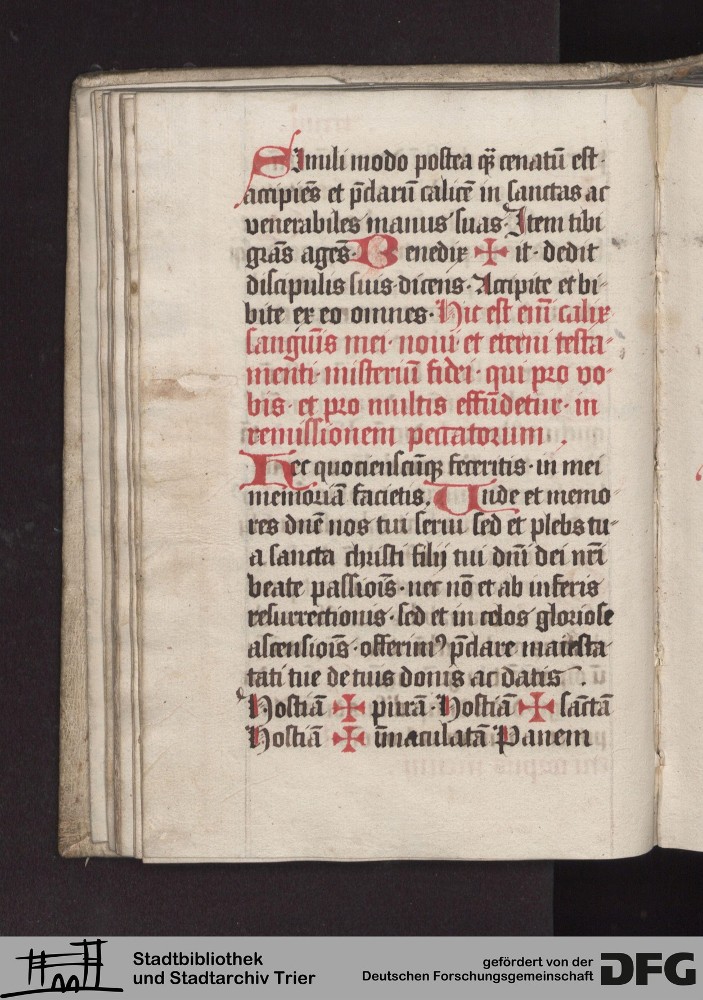 Simili modo postea q̄ʒ cenatū est·
accipiēs et p̄darū calicē in sanctas ac
venerabiles manus suas· Item tibi
grās agēs· Benedix ✠ it· dedit
discipulis suis dicens· Accipite et bi-
bite ex eo omnes· Hic est eiī calix
sanguīs mei· noui et eterni testa-
menti· misteriū fidei· qui pro vo-
bis· et pro multis effūdetur· in
remissionem peccatorum .
Hec quocienscūqʒ feceritis· in mei
memoriā facietis. Unde et memo-
res dnē nos tui serui sed et plebs tu-
a sancta christi filij tui dn̄i dei nr̄i
beate passiōis· nec nō et ab inferis
resurrectionis· sed et in celos gloriose
ascensiōis· offerimꝰ p̄clare maiesta
tati tue de tuis donis ac datis .
Hostiā ✠ purā· Hostiā ✠ sāctā
Hostiā ✠ īmaculatā Panem
Stadtbibliothek
und Stadtarchiv Trier
gefördert von der
Deutschen Forschungsgemeinschaft
DFG